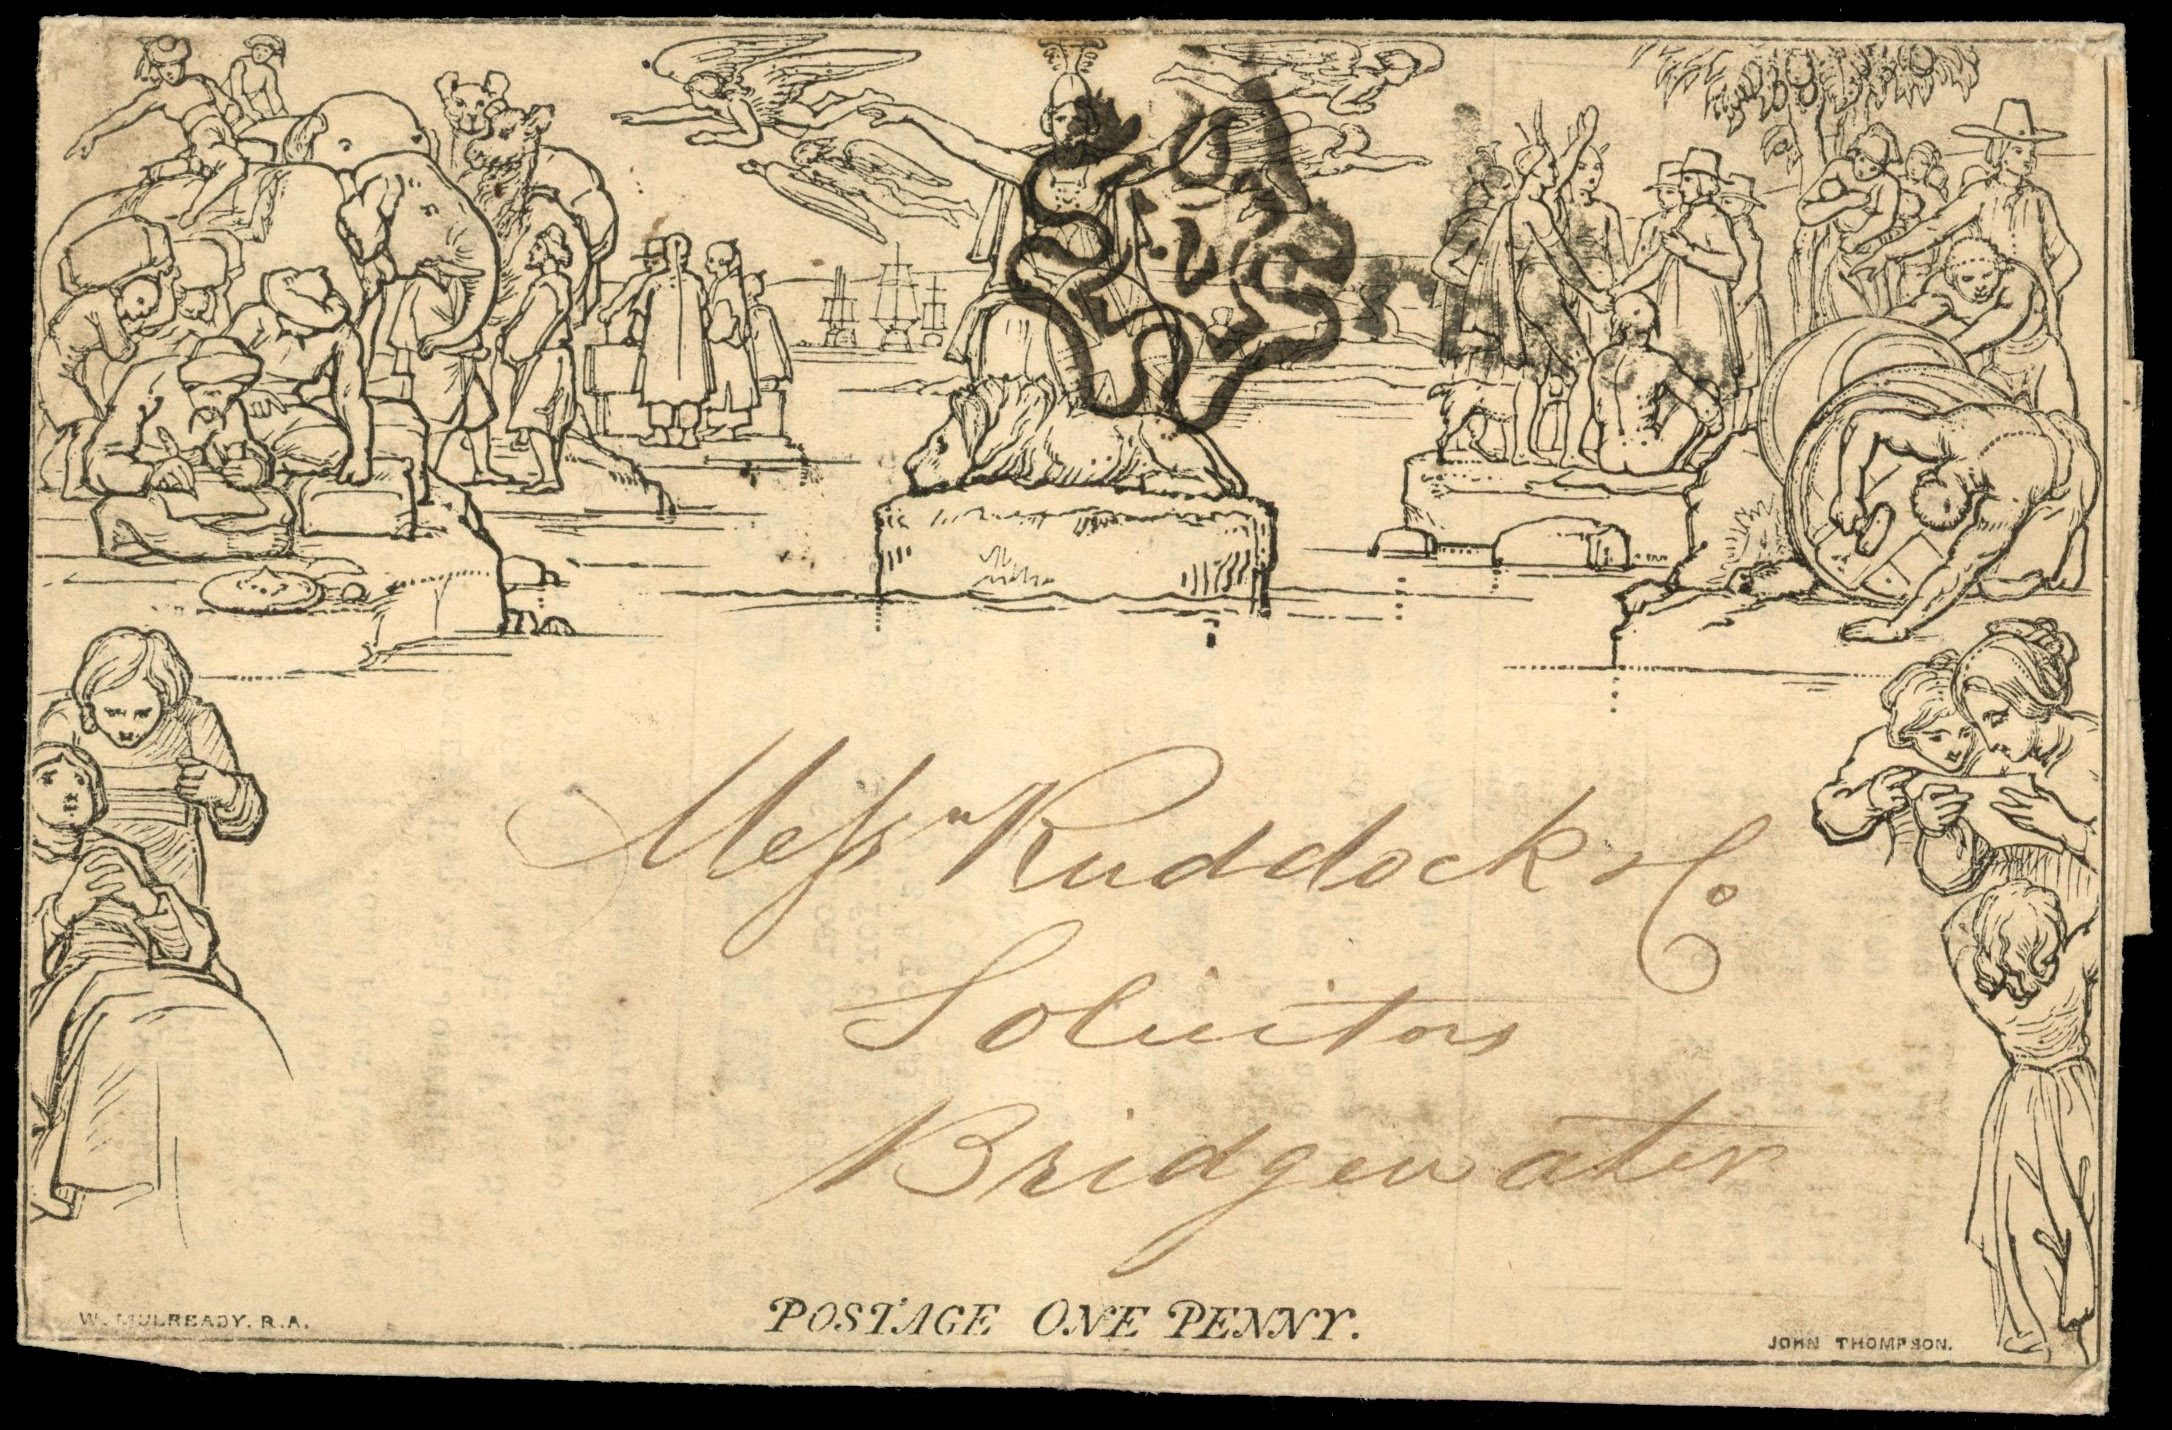 Messrs Ruddock & Co
Solicitors
Bridgewater
POSTAGE ONE PENNY.
W. MULREADY. R.A.
JOHN THOMPSON.